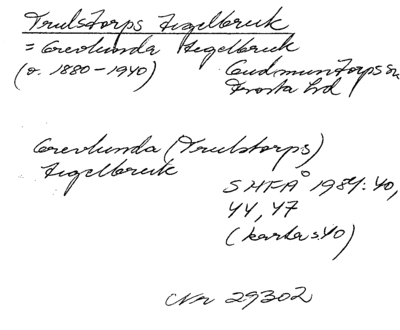 Trulstorps tegelbruk
= Grevlunda tegelbruk
(c. 1880-1940) Gudmuntorps sn
Frosta hd
Grevlunda (Trulstorps)
tegelbruk
SHFÅ 1984:40,
44, 47
(karta s.40)
Nr 29302